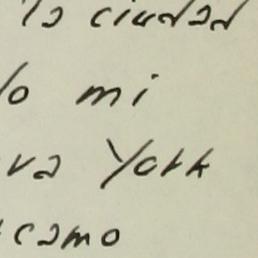 la ciudad
lo mi
va York
camo